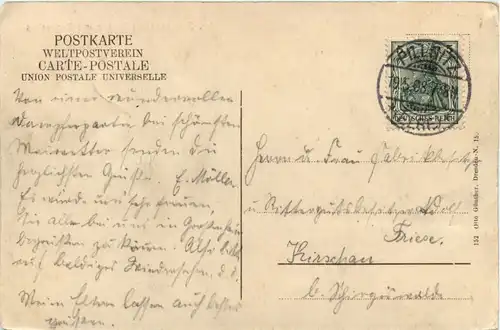 POSTKARTE
WELTPOSTVEREIN
CARTE-POSTALE
UNION POSTALE UNIVERSELLE
Von einer wundervollen
Dampferpartie bei schönstem
Maiwetter senden die
herzlichsten Grüße. E. Möller
Es würde uns sehr freuen,
Sie alle bei uns in
begrüßen zu können. Also
auf baldiges Wiedersehen, d. O.
Meine Eltern lassen auch bestens
grüssen.
PILLNITZ
DEUTSCHES REICH
Herrn u. Frau Fabrikbes.
u. Rittergutsbesitzer
Friese.
Kirschau
b. Schirgiswalde
Dresden